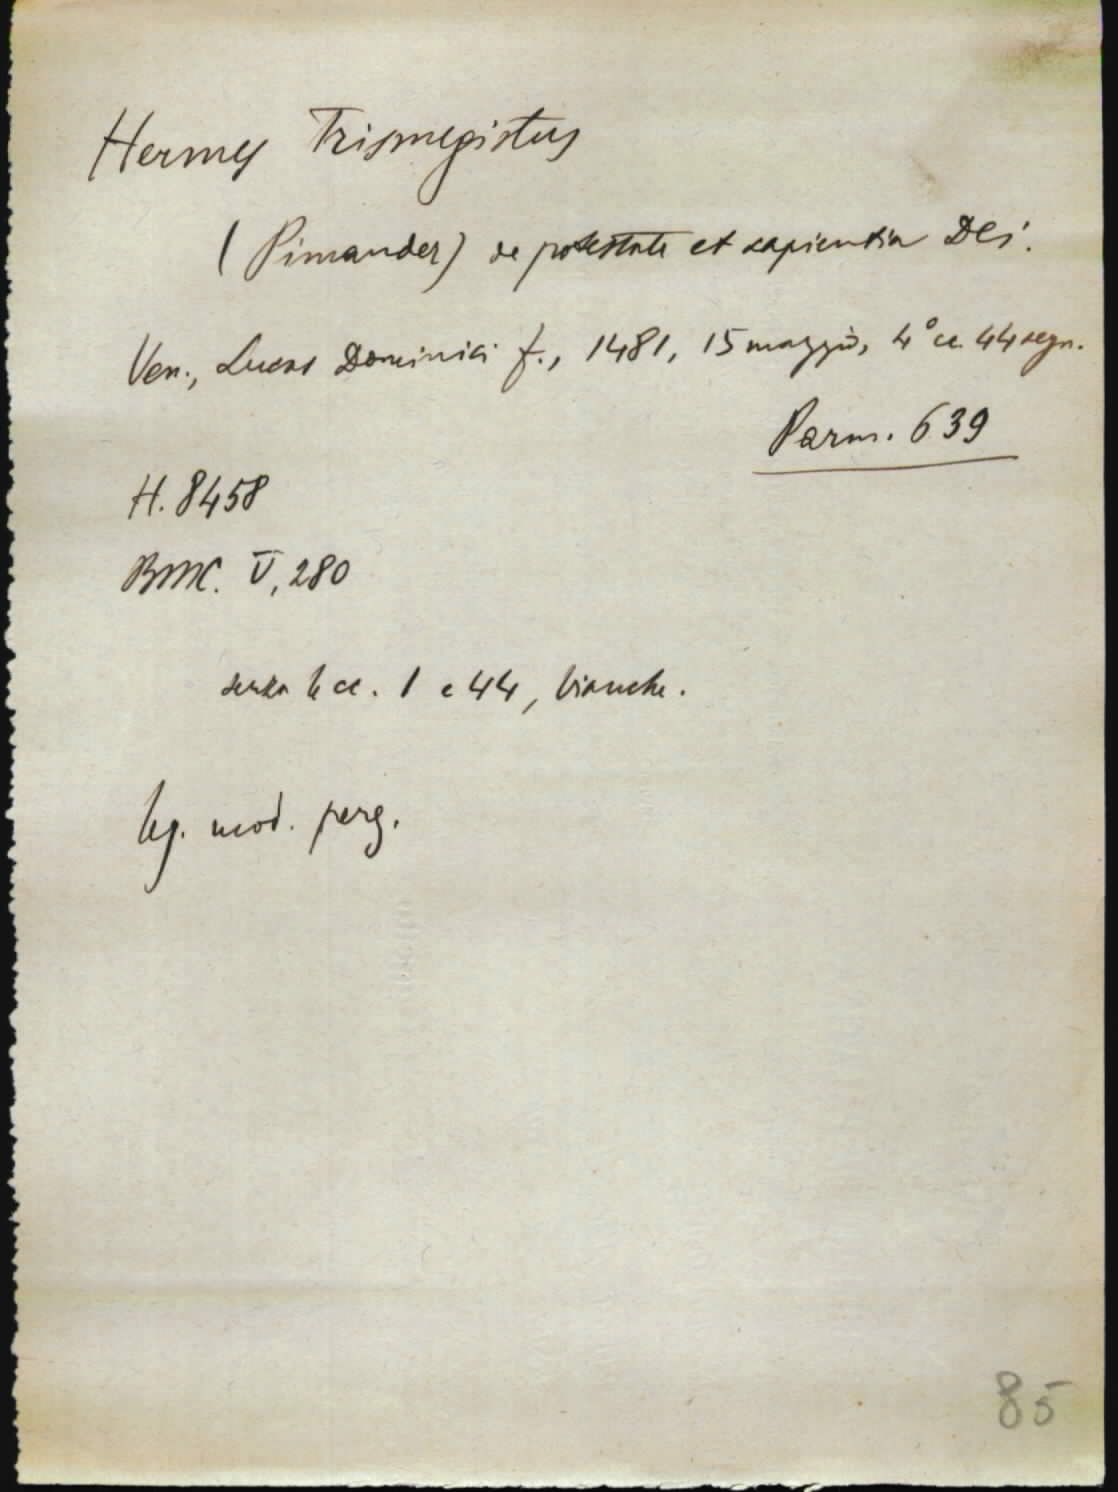 Hermes Trismegistus
(Pimander) de potestate et sapientia Dei.
Ven., Lucas Dominici f., 1481, 15 maggio, 4° cc. 44 segn.
Parm. 639
H. 8458
BMC. V, 280
senza le cc. 1 e 44, bianche.
leg. mod. perg.
85